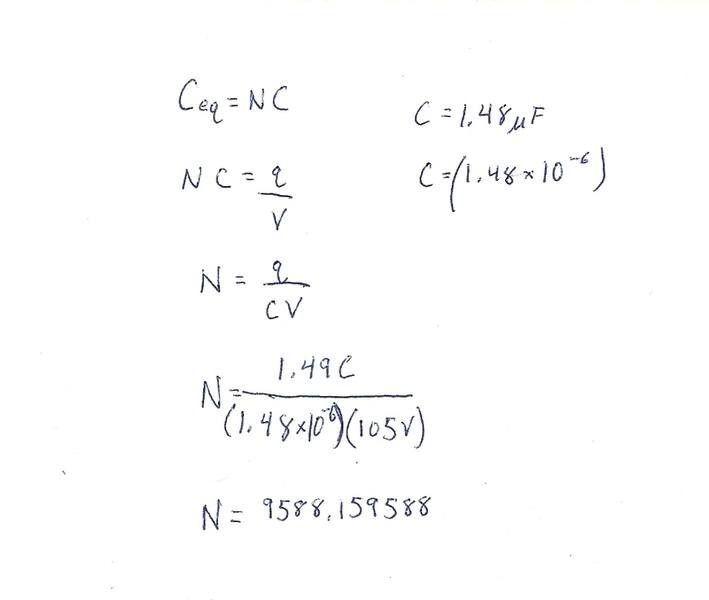 Ceq = NC
C = 1.48 μF
NC = q/V
C = (1.48 × 10⁻⁶)
N = q/CV
N = 1.49C/(1.48×10⁻⁶)(105V)
N = 9588.159588